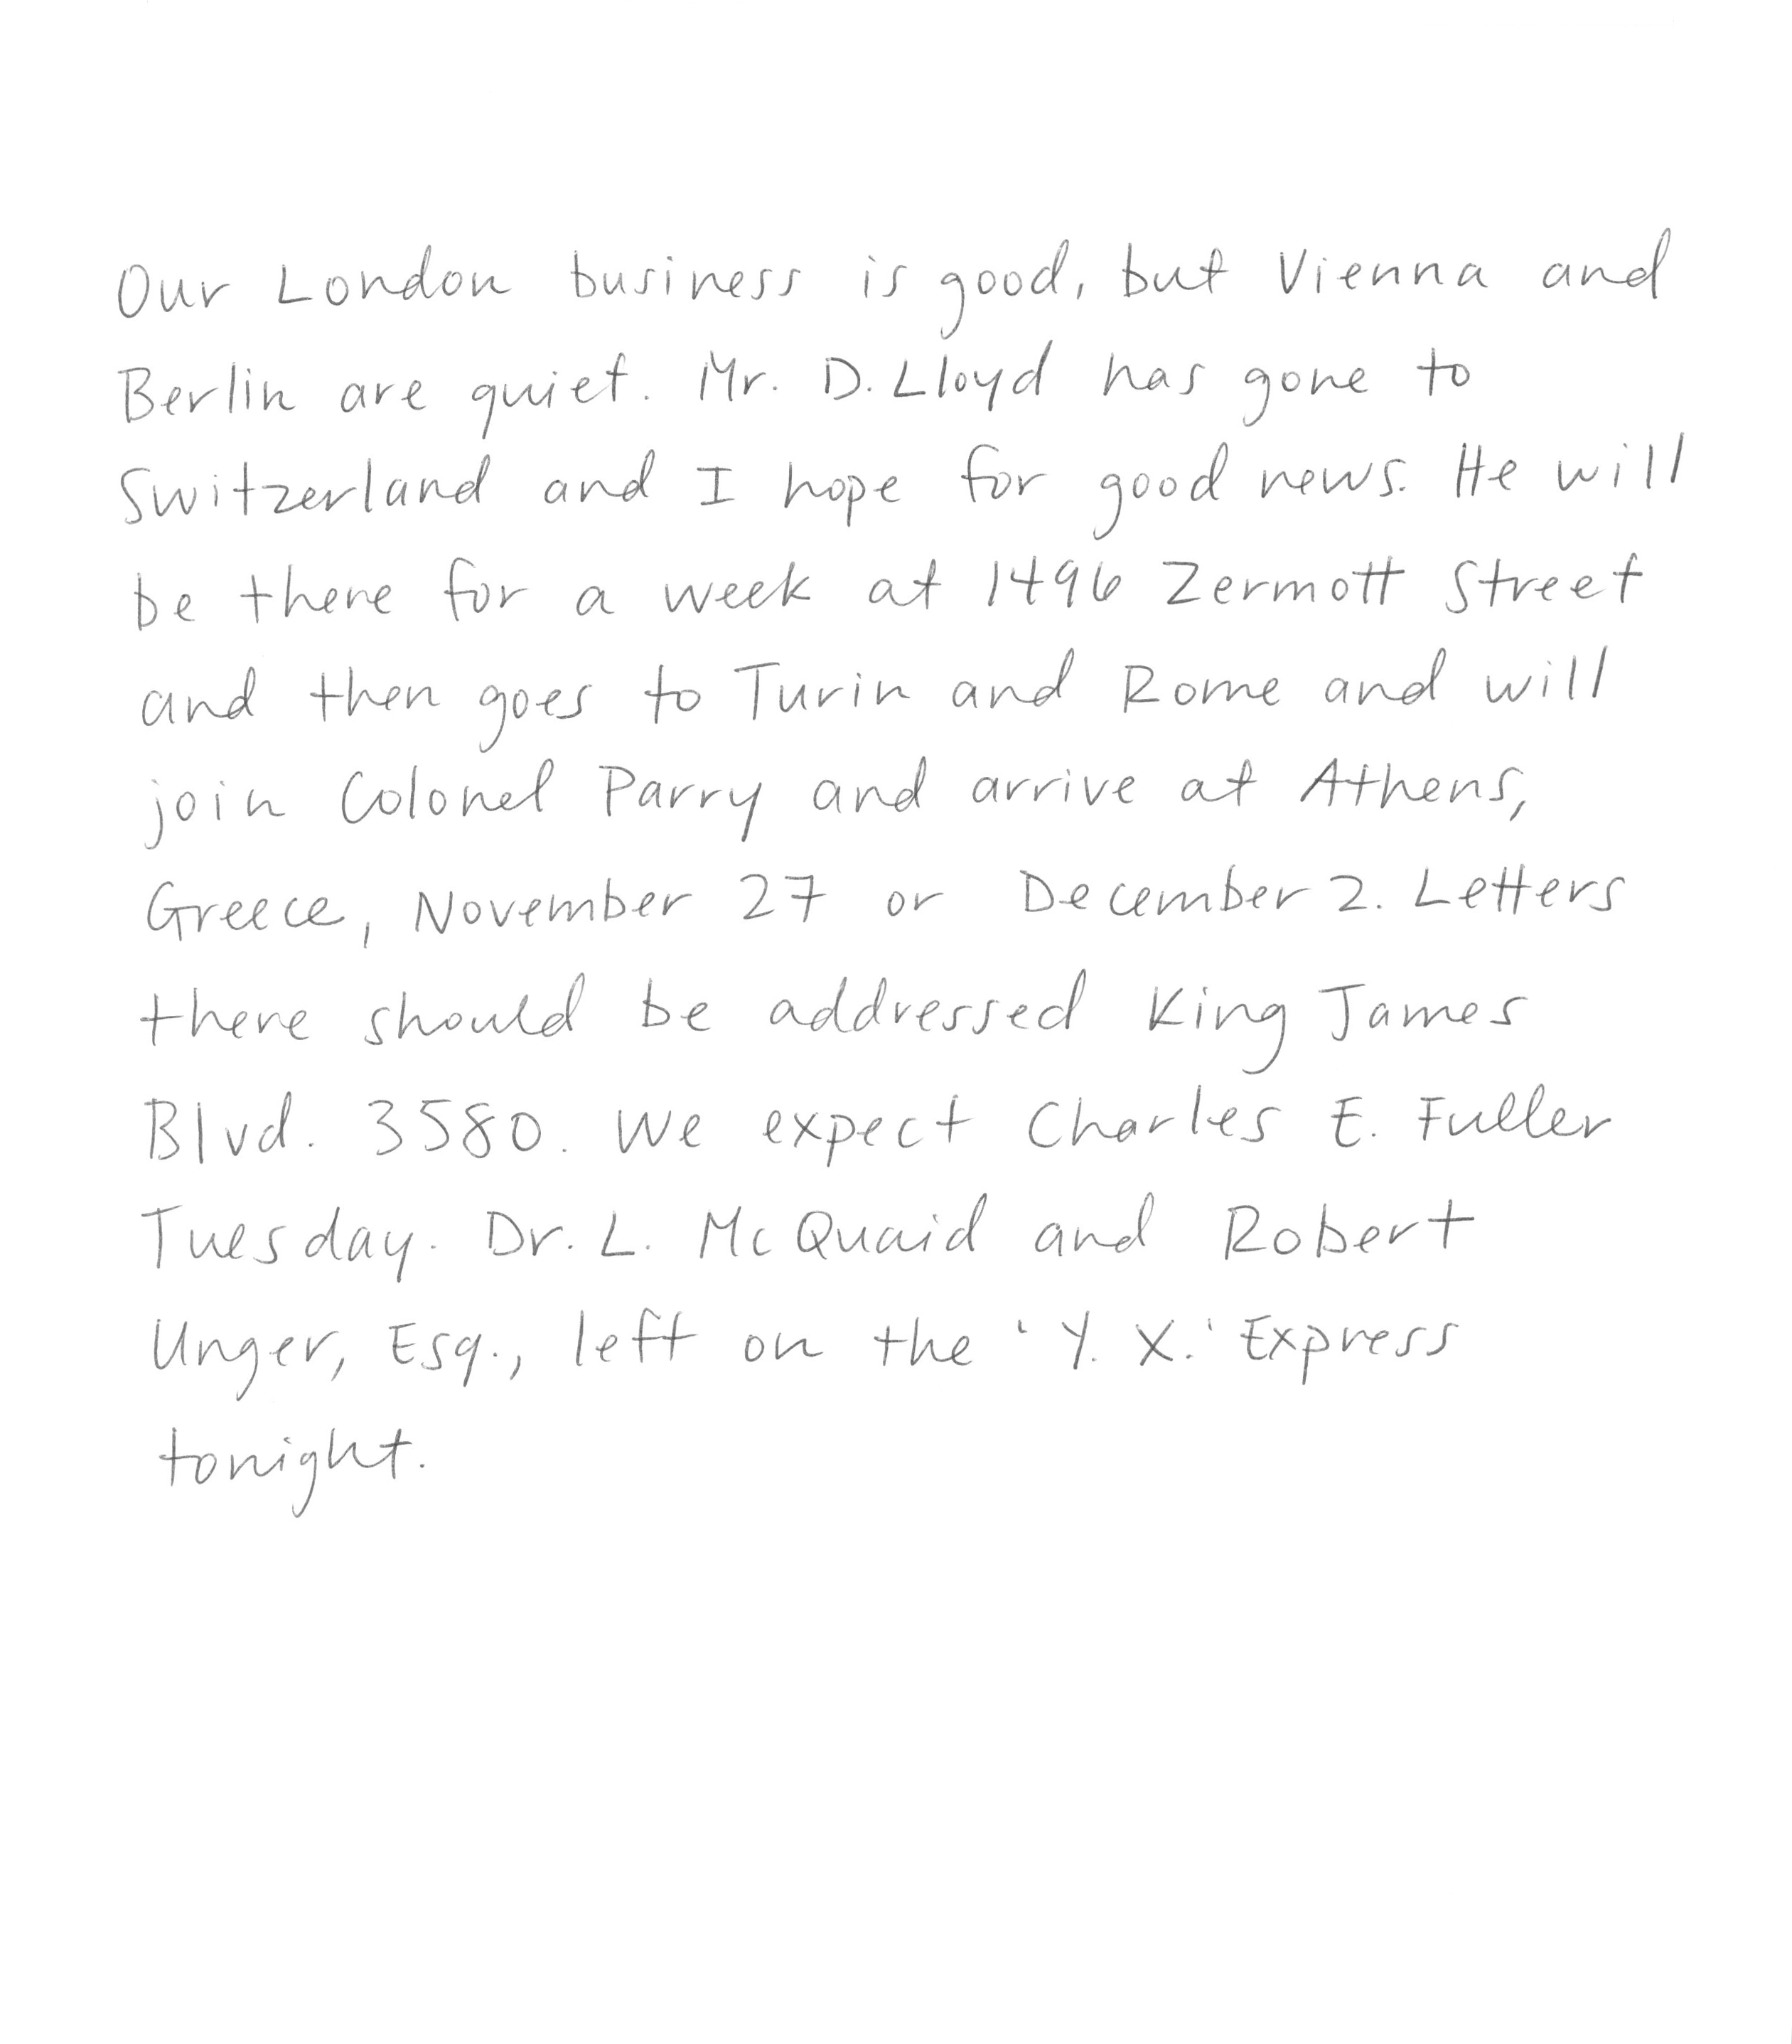 Our London business is good, but Vienna and
Berlin are quiet. Mr. D. Lloyd has gone to
Switzerland and I hope for good news. He will
be there for a week at 1496 Zermott Street
and then goes to Turin and Rome and will
join Colonel Parry and arrive at Athens,
Greece, November 27 or December 2. Letters
there should be addressed King James
Blvd. 3580. We expect Charles E. Fuller
Tuesday. Dr. L. McQuaid and Robert
Unger, Esq., left on the 'Y. X.' Express
tonight.